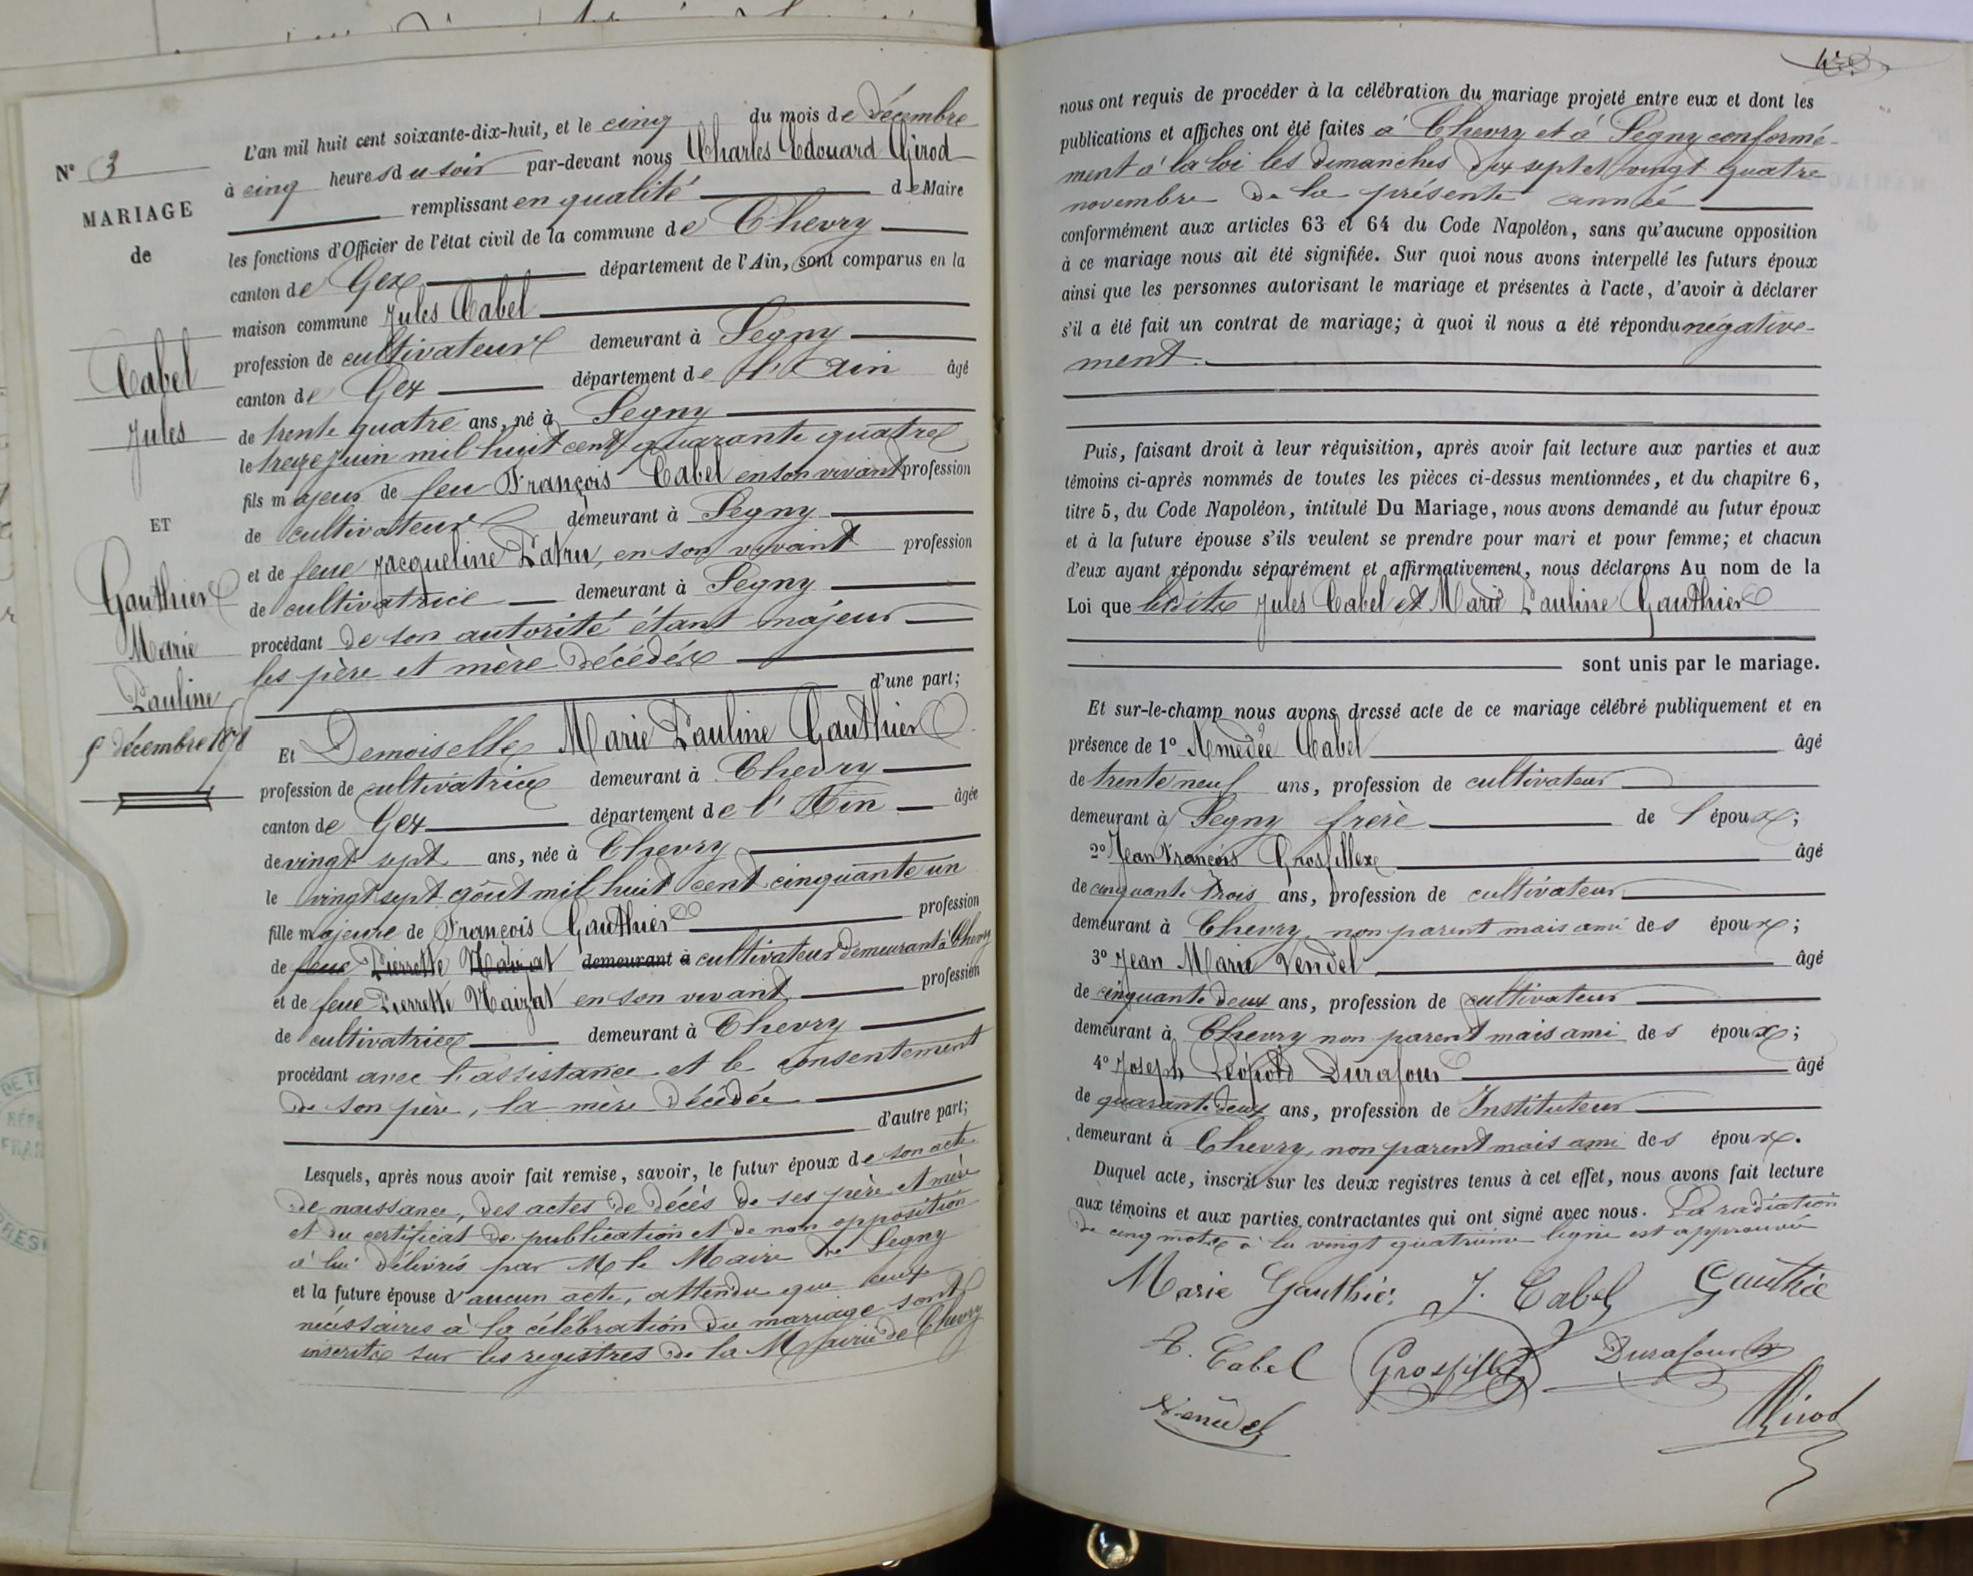 N° 3
MARIAGE
de
Cabel
Jules
ET
Gauthier
Marie
Pauline
5 décembre 1878
L'an mil huit cent soixante-dix-huit, et le cinq du mois de décembre
à cinq heures du soir par-devant nous Charles Edouard Girod
remplissant en qualité de Maire
les fonctions d'Officier de l'état civil de la commune de Chevry
canton de Gex département de l'Ain, sont comparus en la
maison commune Jules Cabel
profession de cultivateur demeurant à Segny
canton de Gex département de l'Ain âgé
de trente quatre ans, né à Segny
le treize juin mil huit cent quarante quatre
fils majeur de feu François Cabel en son vivant profession
de cultivateur demeurant à Segny
et de feue Jacqueline Patru, en son vivant profession
de cultivatrice demeurant à Segny
procédant de son autorité étant majeur
les père et mère décédés
d'une part;
Et Demoiselle Marie Pauline Gauthier
profession de cultivatrice demeurant à Chevry
canton de Gex département de l'Ain âgée
de vingt sept ans, née à Chevry
le vingt sept août mil huit cent cinquante un
fille majeure de François Gauthier profession
de feue Pierrette demeurant à cultivateur demeurant à Chevry
et de feue Pierrette en son vivant profession
de cultivatrice demeurant à Chevry
procédant avec l'assistance et le consentement
de son père, la mère décédée
d'autre part;
Lesquels, après nous avoir fait remise, savoir, le futur époux de son acte
de naissance, des actes de décès de ses père et mère
et du certificat de publication et de non opposition
à lui délivrés par M le Maire de Segny
et la future épouse d'aucun acte, attendu que ceux
nécessaires à la célébration du mariage sont
inscrits sur les registres de la Mairie de Chevry
nous ont requis de procéder à la célébration du mariage projeté entre eux et dont les
publications et affiches ont été faites à Chevry et à Segny conformé-
ment à la loi les dimanches dix sept et vingt quatre
novembre de la présente année
conformément aux articles 63 et 64 du Code Napoléon, sans qu'aucune opposition
à ce mariage nous ait été signifiée. Sur quoi nous avons interpellé les futurs époux
ainsi que les personnes autorisant le mariage et présentes à l'acte, d'avoir à déclarer
s'il a été fait un contrat de mariage; à quoi il nous a été répondu négative-
ment.
Puis, faisant droit à leur réquisition, après avoir fait lecture aux parties et aux
témoins ci-après nommés de toutes les pièces ci-dessus mentionnées, et du chapitre 6,
titre 5, du Code Napoléon, intitulé Du Mariage, nous avons demandé au futur époux
et à la future épouse s'ils veulent se prendre pour mari et pour femme; et chacun
d'eux ayant répondu séparément et affirmativement, nous déclarons Au nom de la
Loi que lesdits Jules Cabel et Marie Pauline Gauthier
sont unis par le mariage.
Et sur-le-champ nous avons dressé acte de ce mariage célébré publiquement et en
présence de 1° Amedée Cabel âgé
de trente neuf ans, profession de cultivateur
demeurant à Segny frère de l'époux;
2° Jean François Grosfillex âgé
de cinquante trois ans, profession de cultivateur
demeurant à Chevry, non parent mais ami des époux;
3° Jean Marie Vendel âgé
de cinquante deux ans, profession de cultivateur
demeurant à Chevry non parent mais ami des époux;
4° Joseph Léopold Durafour âgé
de quarante deux ans, profession de Instituteur
demeurant à Chevry, non parent mais ami des époux.
Duquel acte, inscrit sur les deux registres tenus à cet effet, nous avons fait lecture
aux témoins et aux parties contractantes qui ont signé avec nous. La radiation
de cinq mots à la vingt quatrième ligne est approuvée
Marie Gauthier J. Cabel Gauthier
A. Cabel Grosfillex Durafour
Vendel Girod